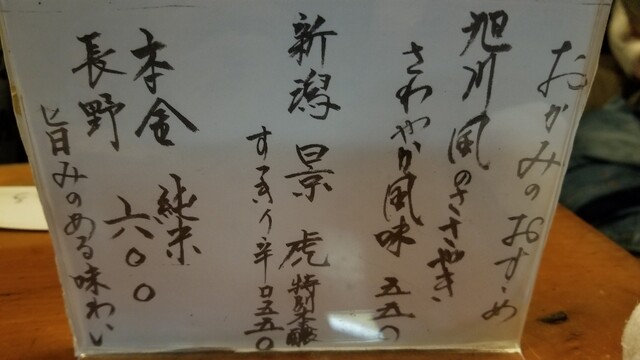 おかみのおすすめ
旭川 風のささやき
さわやか風味 五五〇
新潟 景虎 特別本醸
すっきり辛口五五〇
本金 純米
長野 六〇〇
旨みのある味わい